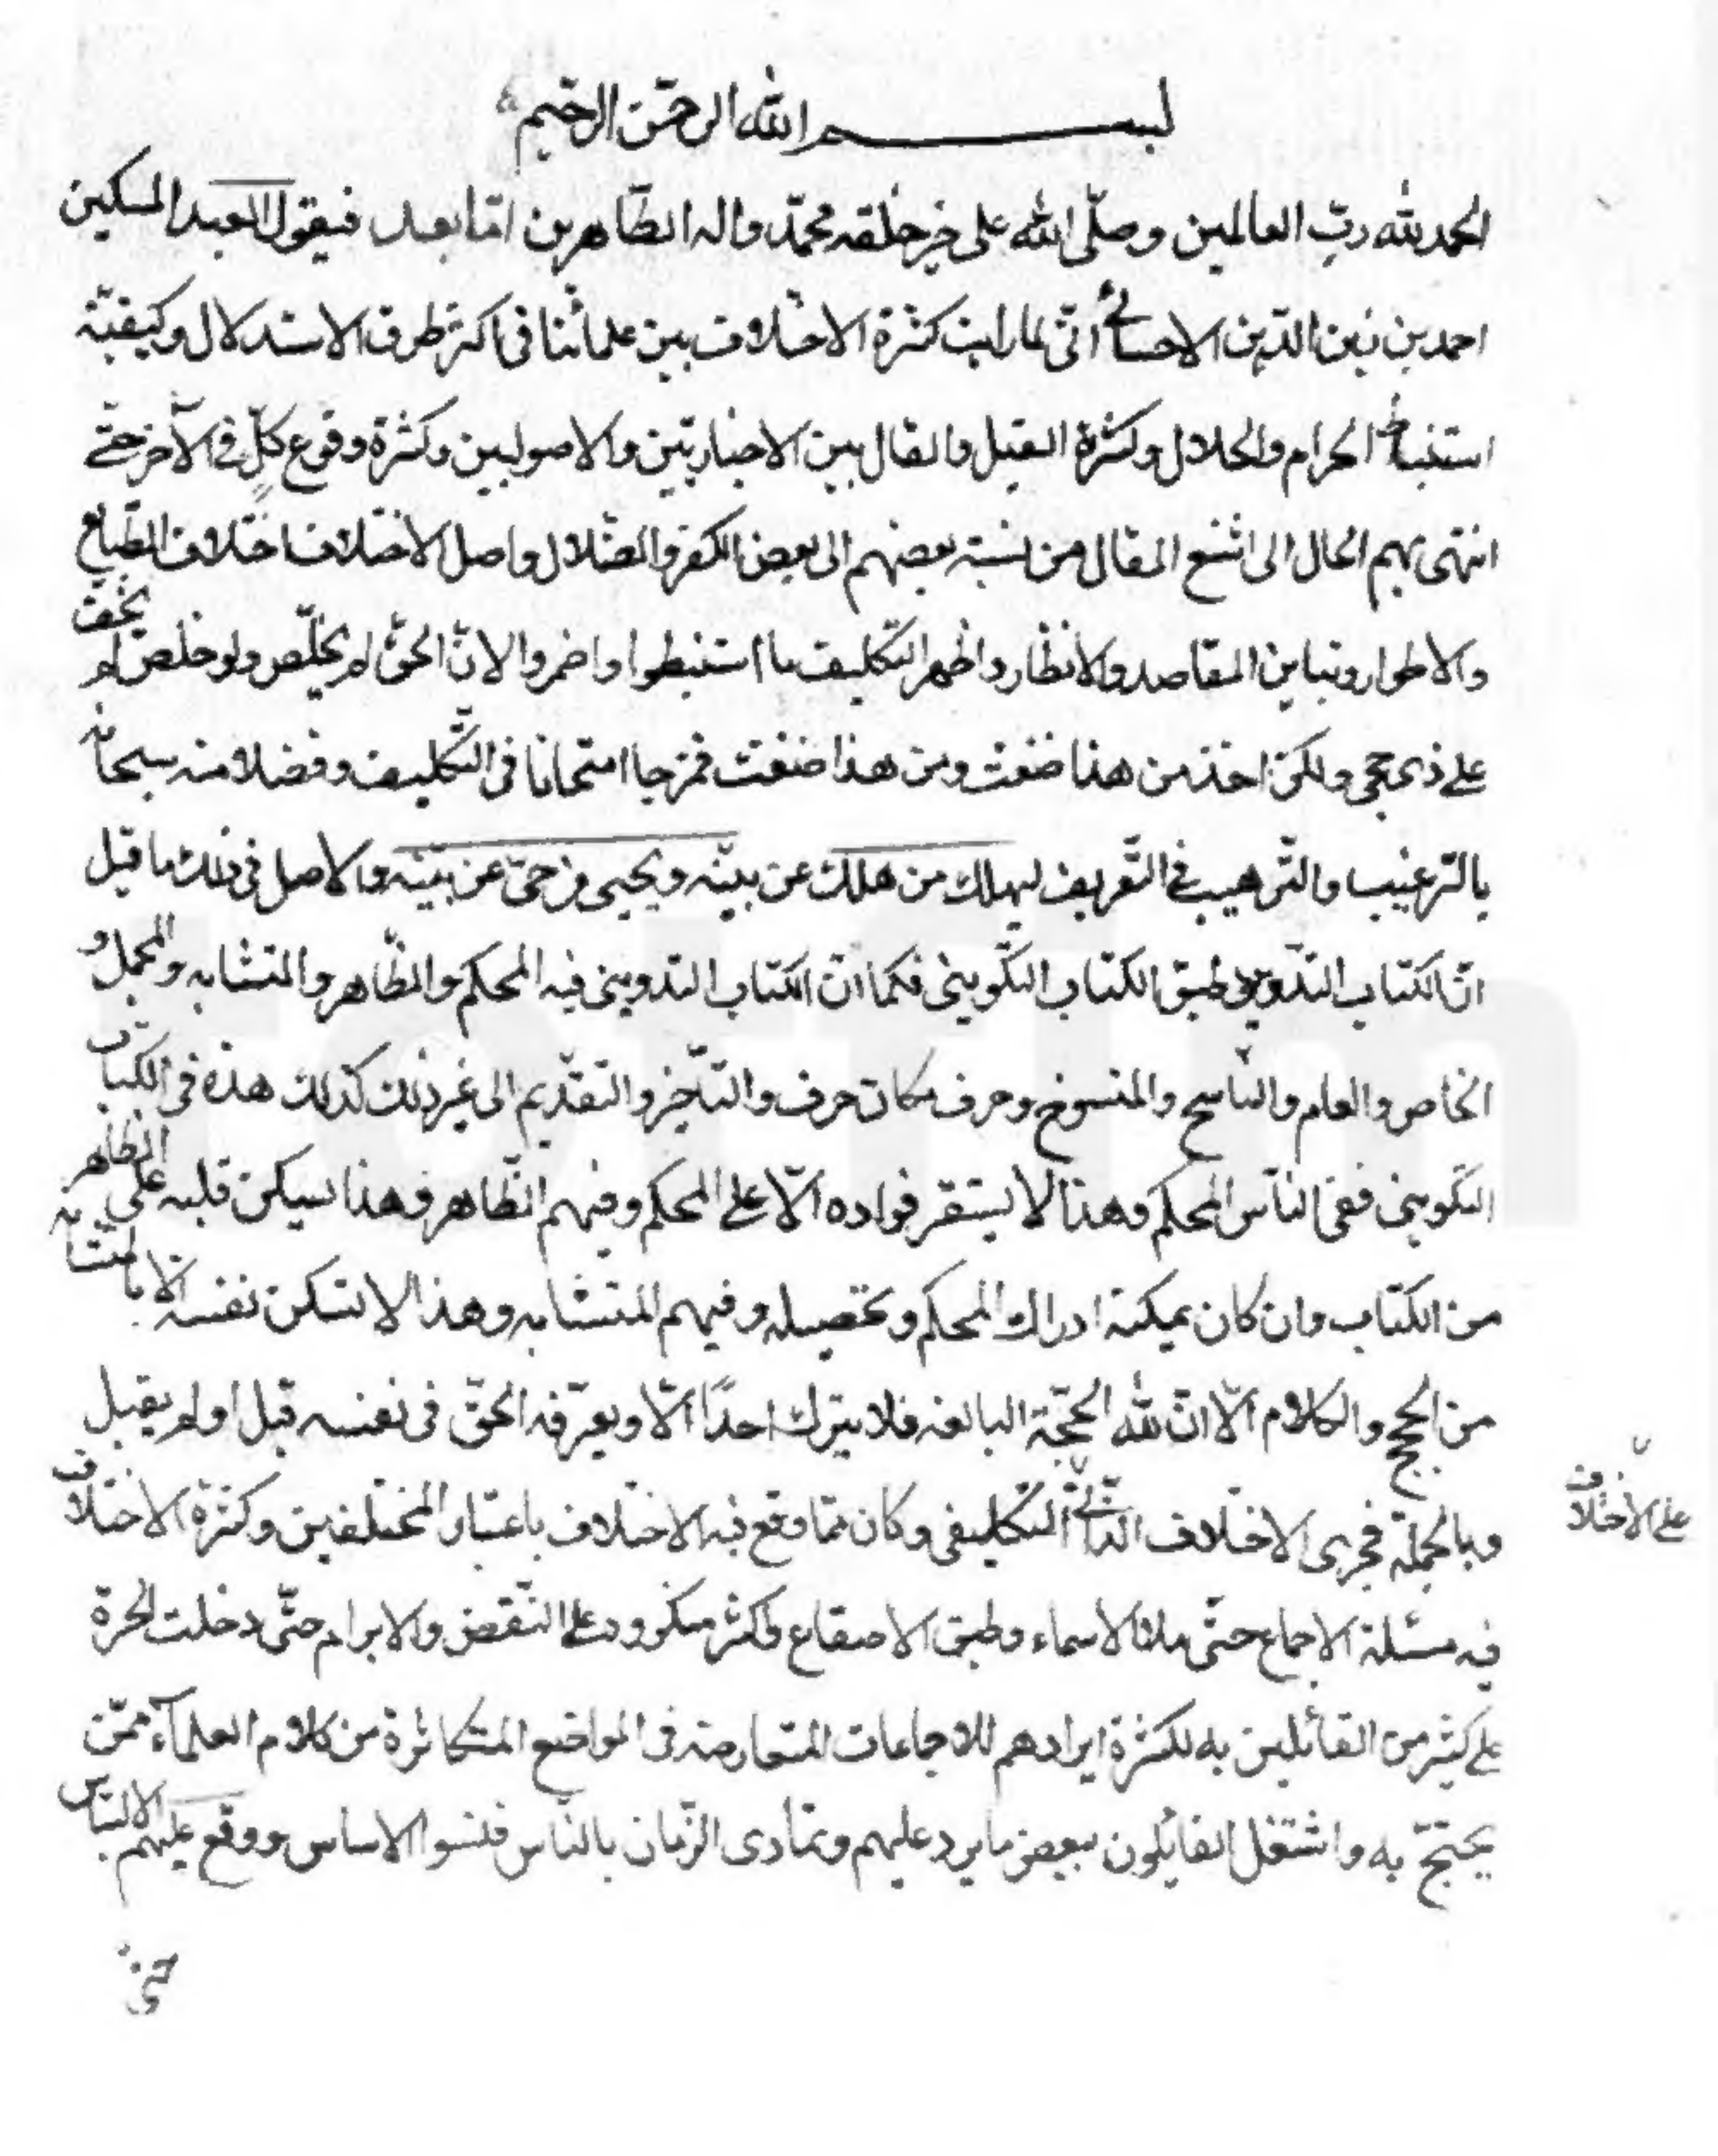 بسم الله الرحمن الرحيم
الحمد لله ربّ العالمين وصلّى الله على خير خلقه محمّد واله الطّاهرين امّا بعد فيقول العبد المسكين
احمد بن زين الدّين الاحسائى انّى لما رايت كثرة الاختلاف بين علمائنا فى اكثر طرق الاستدلال وكيفيّة
استنباط الحرام والحلال وكثرة القيل والقال بين الاخباريّين والاصوليين وكثرة وقوع كلّ فى الآخر حتّى
انتهى بهم الحال الى اشنع المقال من نسبة بعضهم الى بعض الكفر والضّلال واصل الاختلاف اختلاف الطّبايع
والاطوار وتباين المقاصد والانظار واظهر التّكليف ما استنبطوا واضمروا لانّ الحقّ لم يخلّص ولو خلص لم يخف
على ذى حجى ولكن اخذ من هذا ضغث ومن هذا ضغث فمزجا امتحانا فى التّكليف وفضلا منه سبحانه
بالتّرغيب والتّرهيب فى التّعريف ليهلك من هلك عن بيّنة ويحيى من حىّ عن بيّنة والاصل فى ذلك ما قيل
انّ الكتاب التّدوينى طبق الكتاب التّكوينى فكما انّ الكتاب التدوينى فيه المحكم والظّاهر والمتشابه والمجمل و
الخاص والعام والنّاسخ والمنسوخ وحرف مكان حرف والتّاخير والتقديم الى غير ذلك كذلك هذه فى الكتاب
التكوينى ففى النّاس المحكم وهذا لا يستقر فواده الّا على المحكم وفيهم الظّاهر وهذا يسكن قلبه على الظّاهر
من الكتاب وان كان يمكنه ادراك المحكم وتحصيله وفيهم المتشابه وهذا لا تسكن نفسه الّا بالمتشابه
من الحجج والكلام الّا انّ لله الحجّة البالغه فلا يترك احدًا الّا ويعرّفه الحقّ فى نفسه قبل او لم يقبل
وبالجملة فجرى الاختلاف الذّاتى التّكليفى وكان ممّا وقع فيه الاختلاف باعتبار المختلفين وكثرة الاختلاف
على الاختلاف
فيه مسئلة الاجماع حتّى ملا الاسماء وطبق الاصقاع واكثر منكروه على النّقض والابرام حتّى دخلت الحيرة
على كثير من القائلين به لكثرة ايرادهم للاجماعات المتعارضة فى المواضع المتكاثرة من كلام العلمآء ممّن
يحتجّ به واشتغل القائلون ببعض ما يرد عليهم وتمادى الزّمان بالنّاس فنسوا الاساس ووقع عليهم الالتباس
حتى